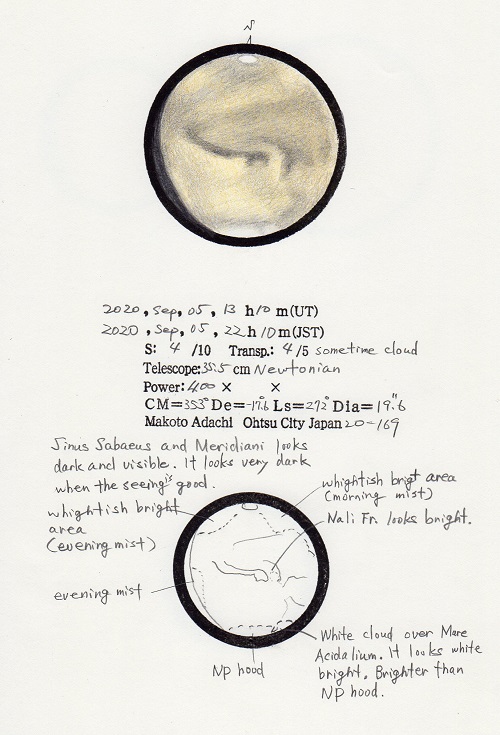 N
2020, Sep, 05, 13 h 10 m (UT)
2020, Sep, 05, 22 h 10 m (JST)
S: 4 /10 Transp.: 4 /5 sometime cloud
Telescope: 35.5 cm Newtonian
Power: 400 × ×
CM=353° De=-17.6 Ls=272° Dia=19.″6
Makoto Adachi Ohtsu City Japan 20-169
Sinus Sabaeus and Meridiani looks
dark and visible. It looks very dark
when the seeing's good.
whightish bright
area
(evening mist)
whightish brigt area
(morning mist)
Nali Fr. looks bright.
evening mist
White cloud over Mare
Acidalium. It looks white
bright. Brighter than
NP hood.
NP hood